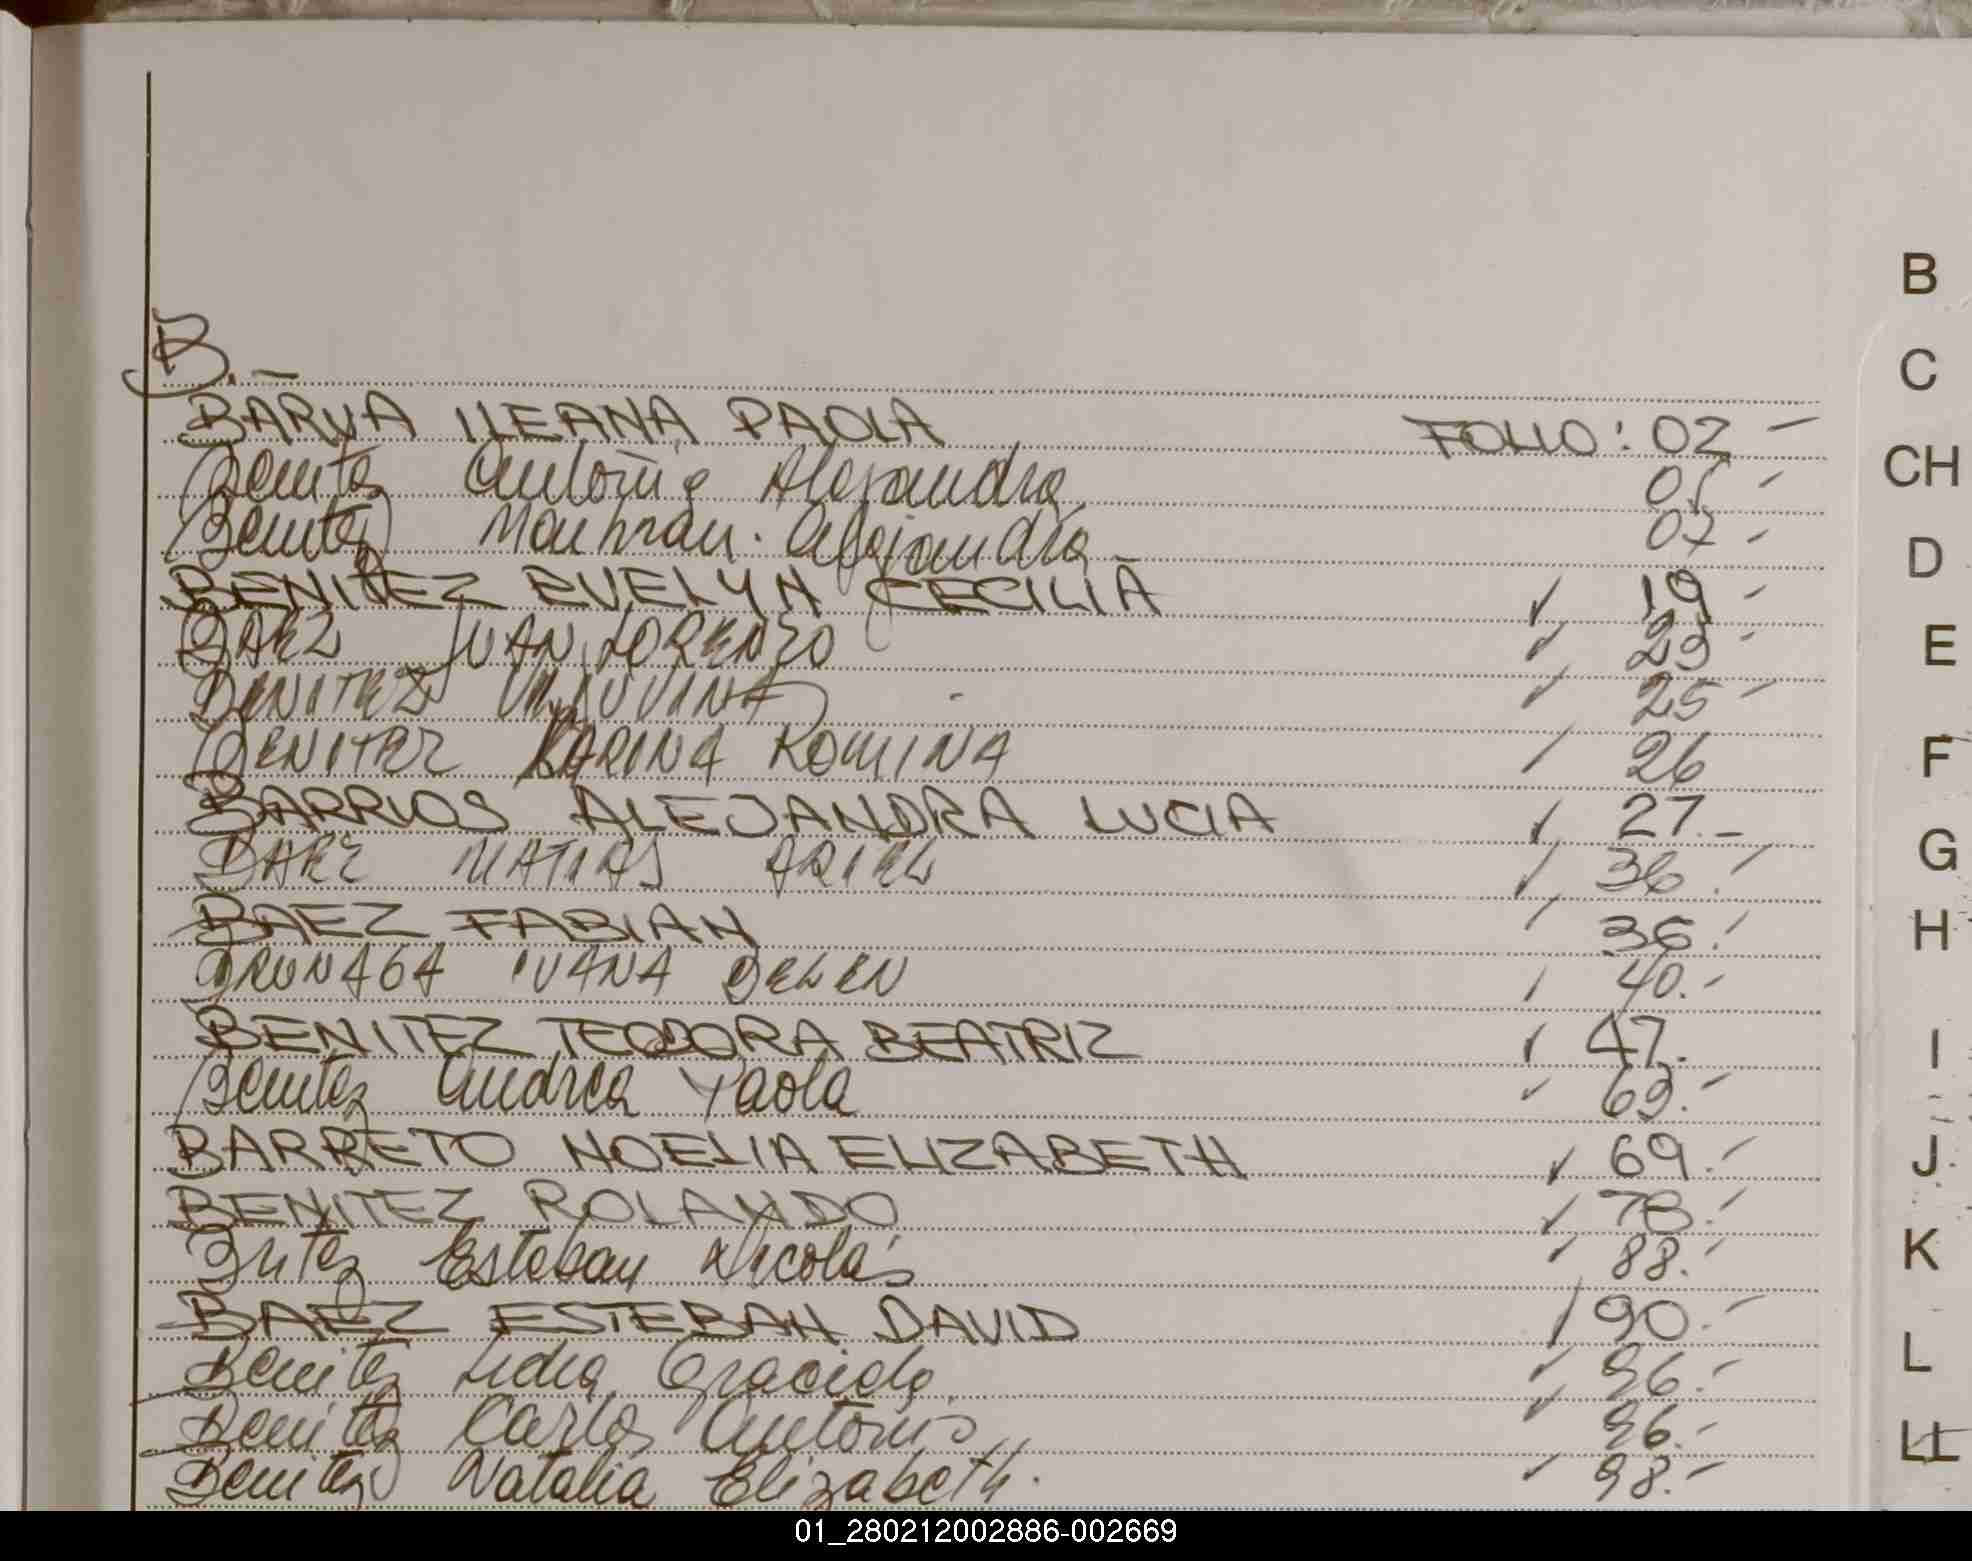 B.-
BARUA ILEANA PAOLA FOLIO: 02 -
Benitez Antonia Alejandra 05 -
Benitez Alejandra 07 -
BENITEZ EVELYN CECILIA ✓ 19 -
BAEZ JUAN LORENZO ✓ 23 -
BENITEZ ✓ 25 -
BENITEZ KARINA ROMINA / 26
BARRIOS ALEJANDRA LUCIA ✓ 27.-
BAEZ MATIAS ARIEL ✓ 36.-
BAEZ FABIAN / 36.-
BRUNAGA IVANA BELEN / 40.-
BENITEZ TEODORA BEATRIZ ✓ 47.-
Benitez Andrea Paola ✓ 63.-
BARRETO NOELIA ELIZABETH ✓ 69.-
BENITEZ ROLANDO ✓ 78.-
Britez Esteban Nicolás ✓ 88.-
BAEZ ESTEBAN DAVID / 90.-
Benitez Lidia Graciela. ✓ 96.-
Benitez Carlos Antonio ✓ 96.-
Benitez Natalia Elizabeth. ✓ 98.-
B
C
CH
D
E
F
G
H
I
J
K
L
LL
01_280212002886-002669